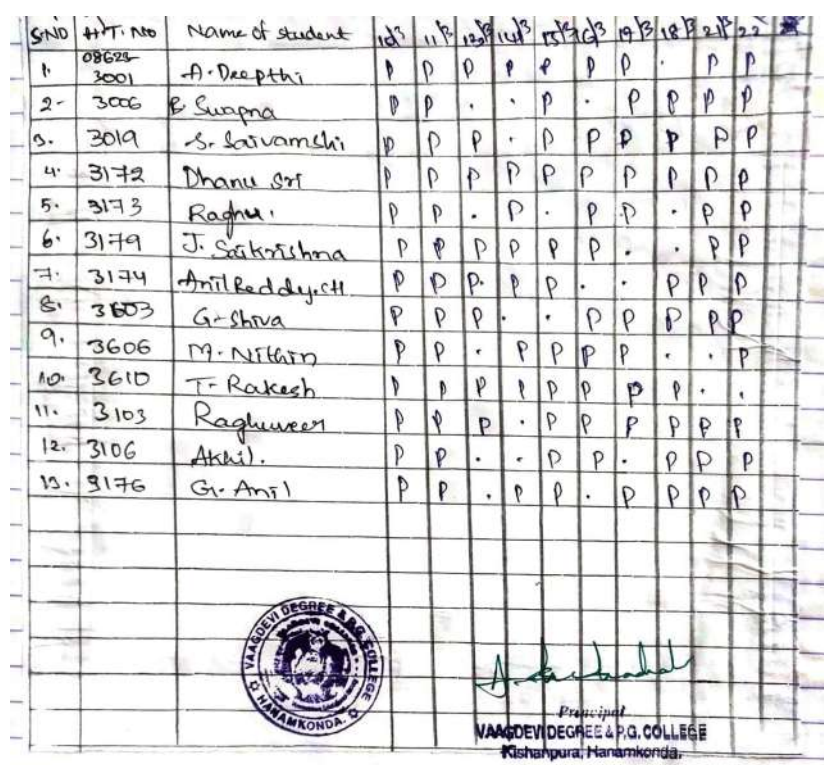 S.NO H.T. NO Name of student 10/3 11/3 12/3 14/3 15/3 16/3 19/3 18/3 21/3 22
1. 08623-3001 A. Deepthi P P P P P P P . P P
2- 3006 B Swapna P P . . P . P P P P
3. 3019 S. Saivamshi P P P . P P P P P P
4. 3172 Dhanu Sri P P P P P P P P P P
5. 3173 Raghu. P P . P . P P . P P
6. 3179 J. Saikrishna P P P P P P . . P P
7. 3174 Anil Reddy.CH P P P. P P . . P P P
8. 3603 G-Shiva P P P . . P P P P P
9. 3606 M. Nithin P P . P P P P . . P
10. 3610 T- Rakesh P P P P P P P P . .
11. 3103 Raghuveer P P P . P P P P P P
12. 3106 Akhil. P P . . P P . P P P
13. 3176 G. Anil P P . P P . P P P P
VAAGDEVI DEGREE & P.G. COLLEGE
HANAMKONDA.
Principal
VAAGDEVI DEGREE & P.G. COLLEGE
Kishanpura, Hanamkonda.